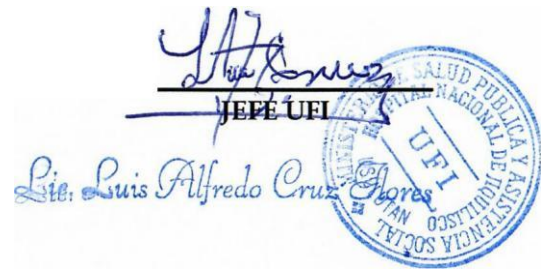 JEFE UFI
Lic. Luis Alfredo Cruz Flores
MINISTERIO DE SALUD PUBLICA Y ASISTENCIA SOCIAL
HOSPITAL NACIONAL DE JIQUILISCO
UFI
USULUTAN